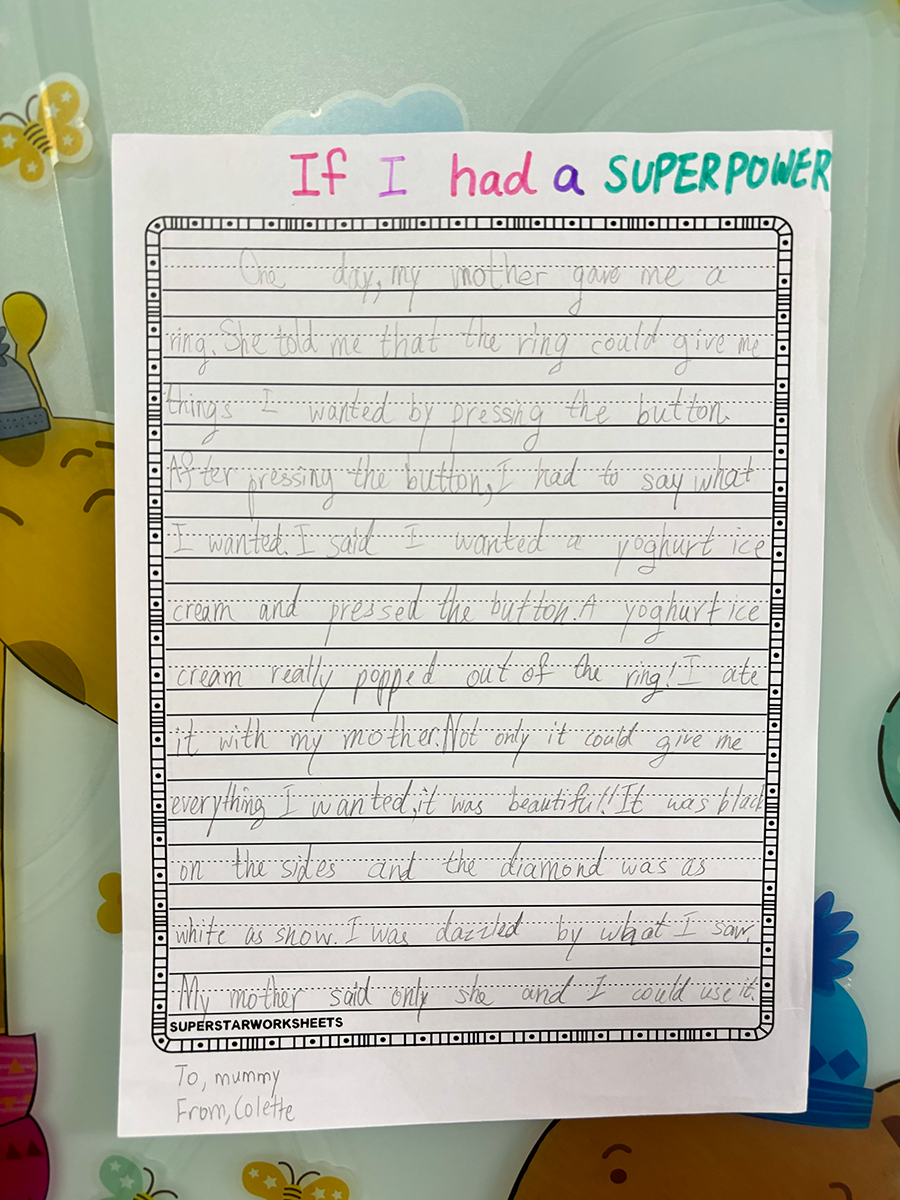 If I had a SUPERPOWER
One day, my mother gave me a
ring. She told me that the ring could give me
things I wanted by pressing the button.
After pressing the button, I had to say what
I wanted. I said I wanted a yoghurt ice
cream and pressed the button. A yoghurt ice
cream really popped out of the ring! I ate
it with my mother. Not only it could give me
everything I wanted, it was beautiful! It was black
on the sides and the diamond was as
white as snow. I was dazzled by what I saw.
My mother said only she and I could use it.
SUPERSTARWORKSHEETS
To, mummy
From, Colette